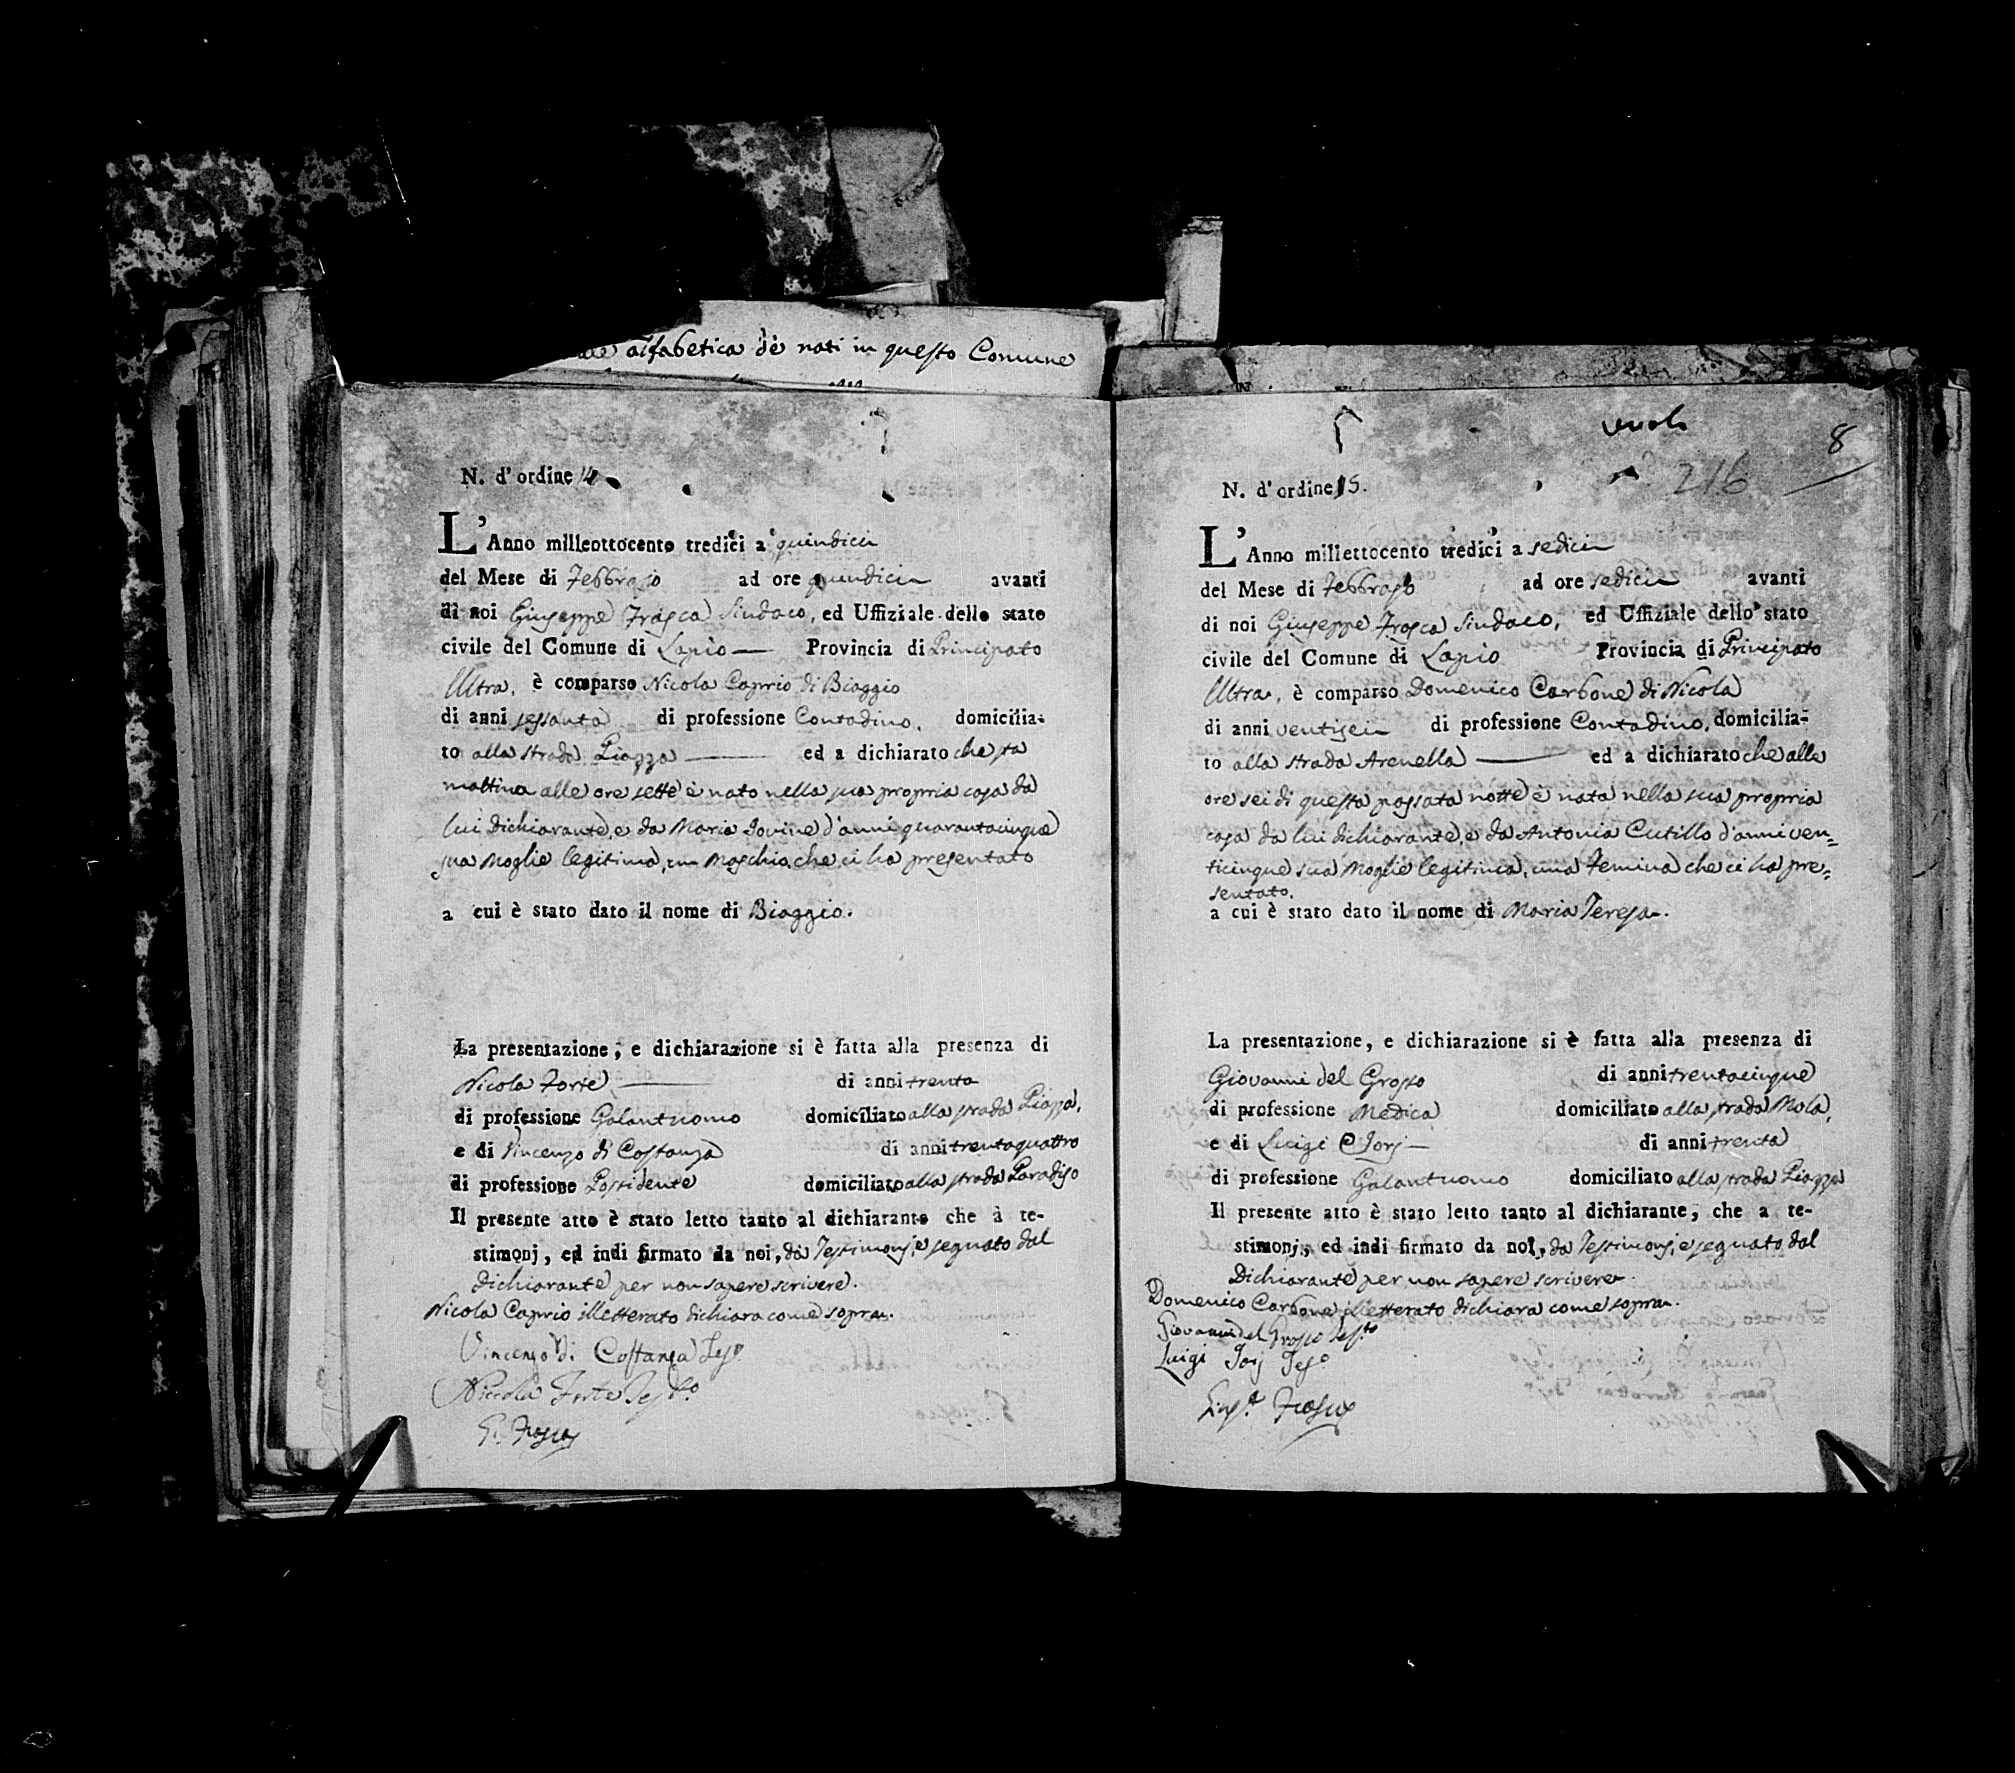 alfabetica de nati in questo Comune
N. d'ordine 14
L'Anno milleottocento tredici a quindici
del Mese di Febbrajo ad ore quindici avanti
di noi Giuseppe Frasca Sindaco, ed Uffiziale dello stato
civile del Comune di Lapio — Provincia di Principato
Ultra, è comparso Nicola Caprio di Biaggio
di anni sessanta di professione Contadino, domicilia-
to alla strada Piazza — ed a dichiarato che sta
mattina alle ore sette è nato nella sua propria casa da
lui dichiarante, e da Maria Iovine d'anni quarantacinque
sua Moglie legitima, un Maschio, che ci ha presentato
a cui è stato dato il nome di Biaggio.
La presentazione, e dichiarazione si è fatta alla presenza di
Nicola Forte — di anni trenta
di professione Galantuomo domiciliato alla strada Piazza,
e di Vincenzo di Costanza di anni trentaquattro
di professione Possidente domiciliato alla strada Paradiso
Il presente atto è stato letto tanto al dichiarante che à te-
stimonj, ed indi firmato da noi, da Testimonj, e segnato dal
Dichiarante per non sapere scrivere.
Nicola Caprio illetterato dichiara come sopra.
Vincenzo di Costanza Teso
Niccola Forte Testo
G. Frasca
8
216
N. d'ordine 15.
L'Anno millettocento tredici a sedici
del Mese di Febbrajo ad ore sedici avanti
di noi Giuseppe Frasca Sindaco, ed Uffiziale dello stato
civile del Comune di Lapio Provincia di Principato
Ultra, è comparso Domenico Carbone di Nicola
di anni ventisei di professione Contadino, domicilia-
to alla strada Arenella — ed a dichiarato che alle
ore sei di questa passata notte è nata nella sua propria
casa da lui dichiarante, e da Antonia Cutillo d'anni ven=
ticinque sua Moglie legitima, una Femina che ci ha pre=
sentato.
a cui è stato dato il nome di Maria Teresa.
La presentazione, e dichiarazione si è fatta alla presenza di
Giovanni del Grosso di anni trentacinque
di professione Medica domiciliato alla strada Mola,
e di Luigi Iorj — di anni trenta
di professione Galantuomo domiciliato alla strada Piazza
Il presente atto è stato letto tanto al dichiarante, che a te-
stimonj, ed indi firmato da noi, da Testimonj, e segnato dal
Dichiarante per non sapere scrivere.
Domenico Carbone illetterato dichiara come sopra.
Giovanni del Grosso Testo
Luigi Iorj Teso
Frasca